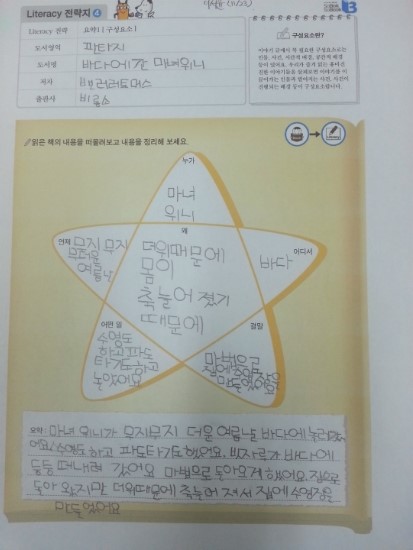 Literacy 전략지 4
Literacy 전략
요약1 [구성요소]
도서영역
판타지
도서명
바다에 간 마녀위니
저자
밸러리 토머스
출판사
비룡소
구성요소란?
읽은 책의 내용을 떠올려보고 내용을 정리해 보세요.
누가
마녀
위니
언제
무지 무지
무더운
여름날
왜
더위때문에
몸이
축 늘어 졌기
때문에
어디서
바다
어떤 일
수영도
하고 파도
타기도 하고
놀았어요
결말
마법으로
집에 수영장을
만들었어요
요약: 마녀 위니가 무지무지 더울 여름날 바다에 놀러갔
어요. 수영도 하고 파도타기도 했어요. 빗자루가 바다에
둥둥 떠내려 갔어요 마법으로 돌아오게 했어요. 집으로
돌아 왔지만 더위때문에 축 늘어 져서 집에 수영장을
만들었어요